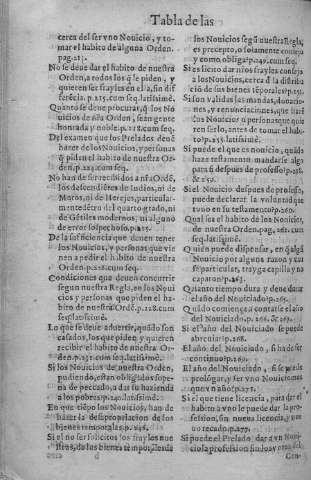 Tabla de las
cerca del ser vno Nouicio, y to-
mar el habito de alguna Orden.
pag.213.
No se deue dar el habito de nuestra
Orden, a todos los q̃ le piden, y
quieren ser frayles en ella, sin dif
ferẽcia. p.215.cum seq. latissimè.
Quanto se deue procurar, q̃ los No
uicios de nr̃a Ordẽ, sean gente
honrada y noble. p.218.cum seq.
Del examen que los Prelados deuẽ
hazer de los Nouicios, y personas
q̃ piden el habito de nuestra Or
den. p.224.cum seq.
No han de ser recebidos a nr̃a Ordẽ,
los descendiẽtes de Indios, ni de
Moros, ni de Herejes, particular-
mente dẽtro del quarto grado, ni
de Gẽtiles modernos, ni alguno
de error sospechoso. p.225.
De la sufficiencia que deuen tener
los Nouicios, y personas que vie
nen a pedir el habito de nuestra
Orden. p.228.cum seq.
Condiciones que deuen concurrir
segun nuestra Regla, en los Noui
cios y personas que piden el ha-
bito de nuestra Ordẽ. p.228.cum
seq.latissimè.
Lo que se deue aduertir, quãdo son
casados, los que piden, y quieren
recibir el habito de nuestra Or-
den. p.231.cum seq.latissimè.
Si los Nouicios de nuestra Orden,
pudiendo, estan obligados sope-
na de peccado, a dar su hazienda
a los pobres. p.240.latissimè.
En que tiẽpo los Nouicios, han de
hazer la desapropiacion de los
bienes temporales. p.246.
Si el no ser solicitos los frayles nue
stros, de los bienes temporales de
los Nouicios segũ nuestra Regla,
es precepto, o solamente consejo
y como obliga? p.247.cum seq.
Si es licito dar nr̃os frayles consejo
a los Nouicios, cerca d̃ la distribu
ciõ de sus bienes tẽporales? p.251.
Si son validas las mandas, donacio-
nes, y renunciaciones, que hazẽ
los Nouicios o personas que quie
ren serlo, antes de tomar el habi-
to? p.255.latissimè.
Si puede el que es nouicio, quãdo
haze testamento mandarse algo
para q̃ despues de professo? p.258.
& 259.
Si el Nouicio despues de professo,
puede declarar la voluntad que
tuuo en su testamento? p.260.
Qual sea el habito de los Nouicios,
de nuestra Orden, pag.261.cum
seq.latissimè.
Quien puede dispensar, en q̃ algũ
Nouicio por alguna razon y cau
sa particular, trayga capilla y no
caparon? p.263.
Quanto tiempo dura y deue durar
el año del Nouiciado? p.265.
Quãdo comiença a contarse el año
del Nouiciado. p.266.& 267.
Si el año del Nouiciado se puede
abreuiar? p.268.
El año del Nouiciado, si ha de ser
continuo? p.269.
El año del Nouiciado, si se puede
prolõgar, y ser vno Nouicio mas
que vn año? p.271.
Si el que tiene licencia, para dar el
habito a vno le puede dar la pro-
fession, sin nueua licencia, y nue
uo recado? p.277.
Si puede el Prelado dar a vn Noui-
cio la profession sin los votos del
Con-